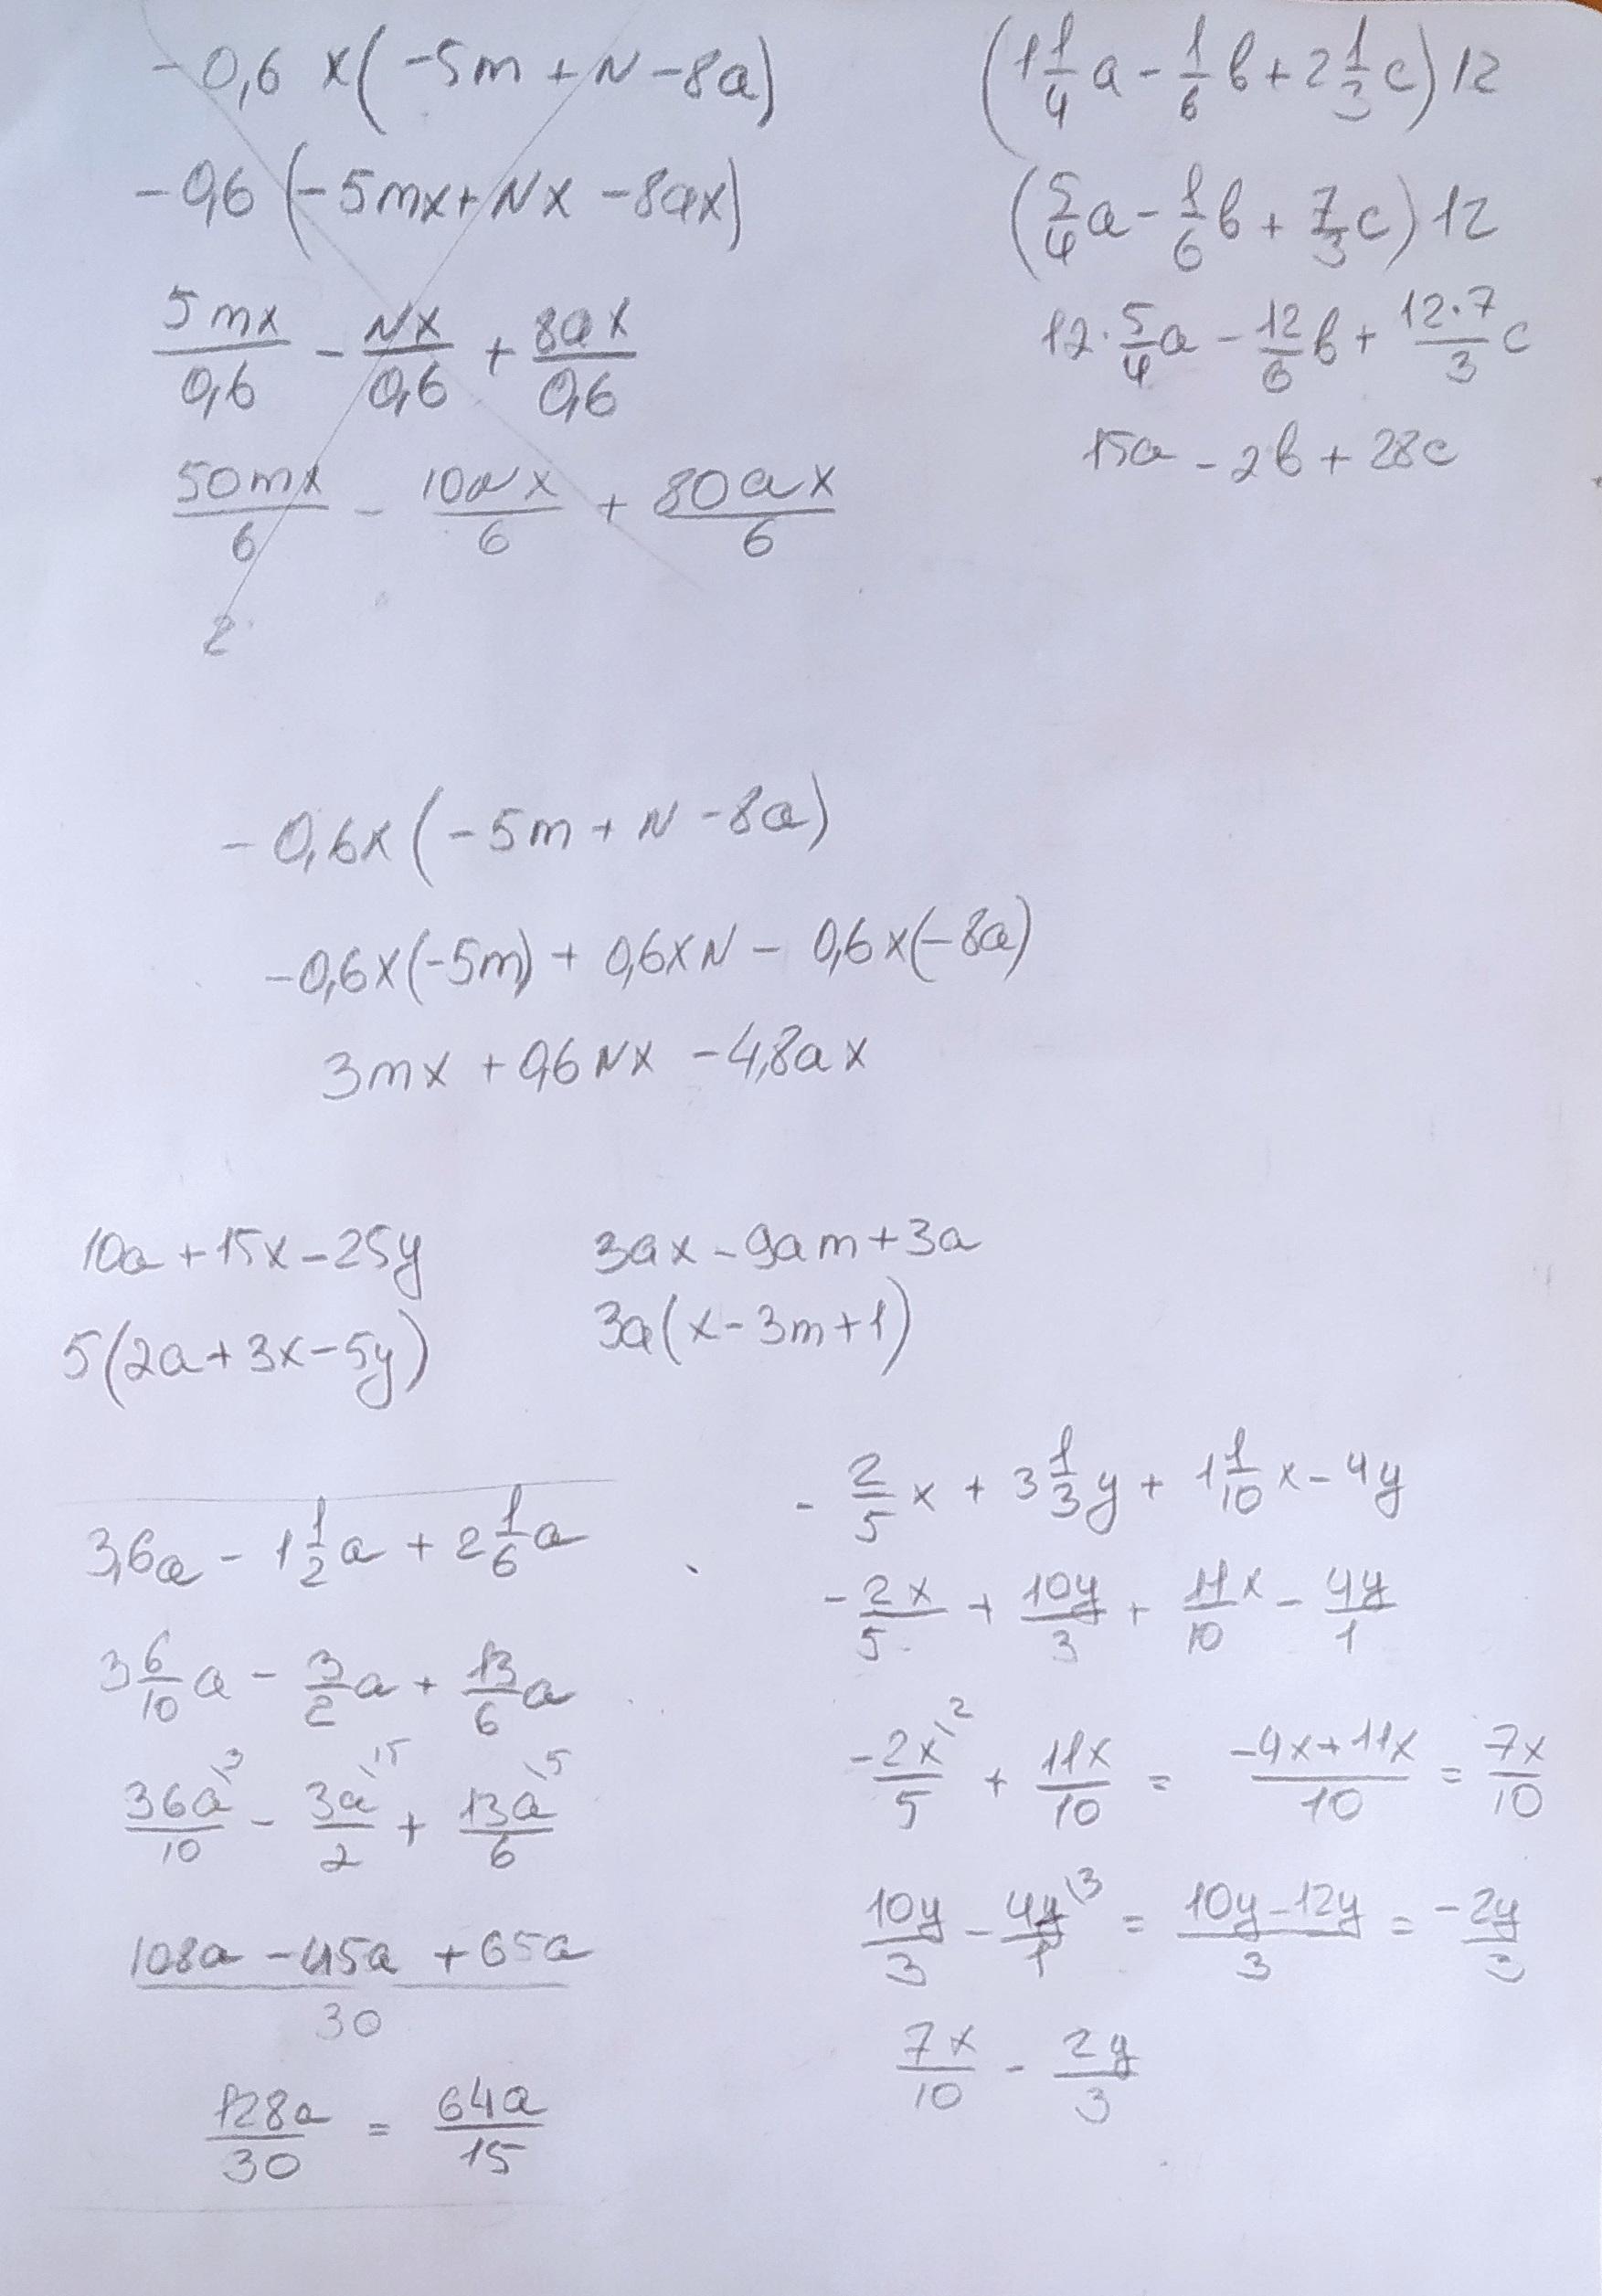 -0,6 x(-5m + N - 8a)
-0,6 (-5mx + Nx - 8ax)
5mx/0,6 - Nx/0,6 + 8ax/0,6
50mx/6 - 10Nx/6 + 80ax/6
2
(1 1/4 a - 1/6 b + 2 1/3 c) 12
(5/4 a - 1/6 b + 7/3 c) 12
12 · 5/4 a - 12/6 b + 12·7/3 c
15a - 2b + 28c
-0,6x(-5m + N - 8a)
-0,6x(-5m) + 0,6xN - 0,6x(-8a)
3mx + 0,6Nx - 4,8ax
10a + 15x - 25y
5(2a + 3x - 5y)
3ax - 9am + 3a
3a(x - 3m + 1)
3,6a - 1 1/2 a + 2 1/6 a
3 6/10 a - 3/2 a + 13/6 a
36a\3/10 - 3a\15/2 + 13a\5/6
108a - 45a + 65a/30
128a/30 = 64a/15
- 2/5 x + 3 1/3 y + 1 1/10 x - 4y
- 2x/5 + 10y/3 + 11x/10 - 4y/1
-2x\2/5 + 11x/10 = -4x+11x/10 = 7x/10
10y/3 - 4y\3/1 = 10y-12y/3 = -2y/3
7x/10 - 2y/3